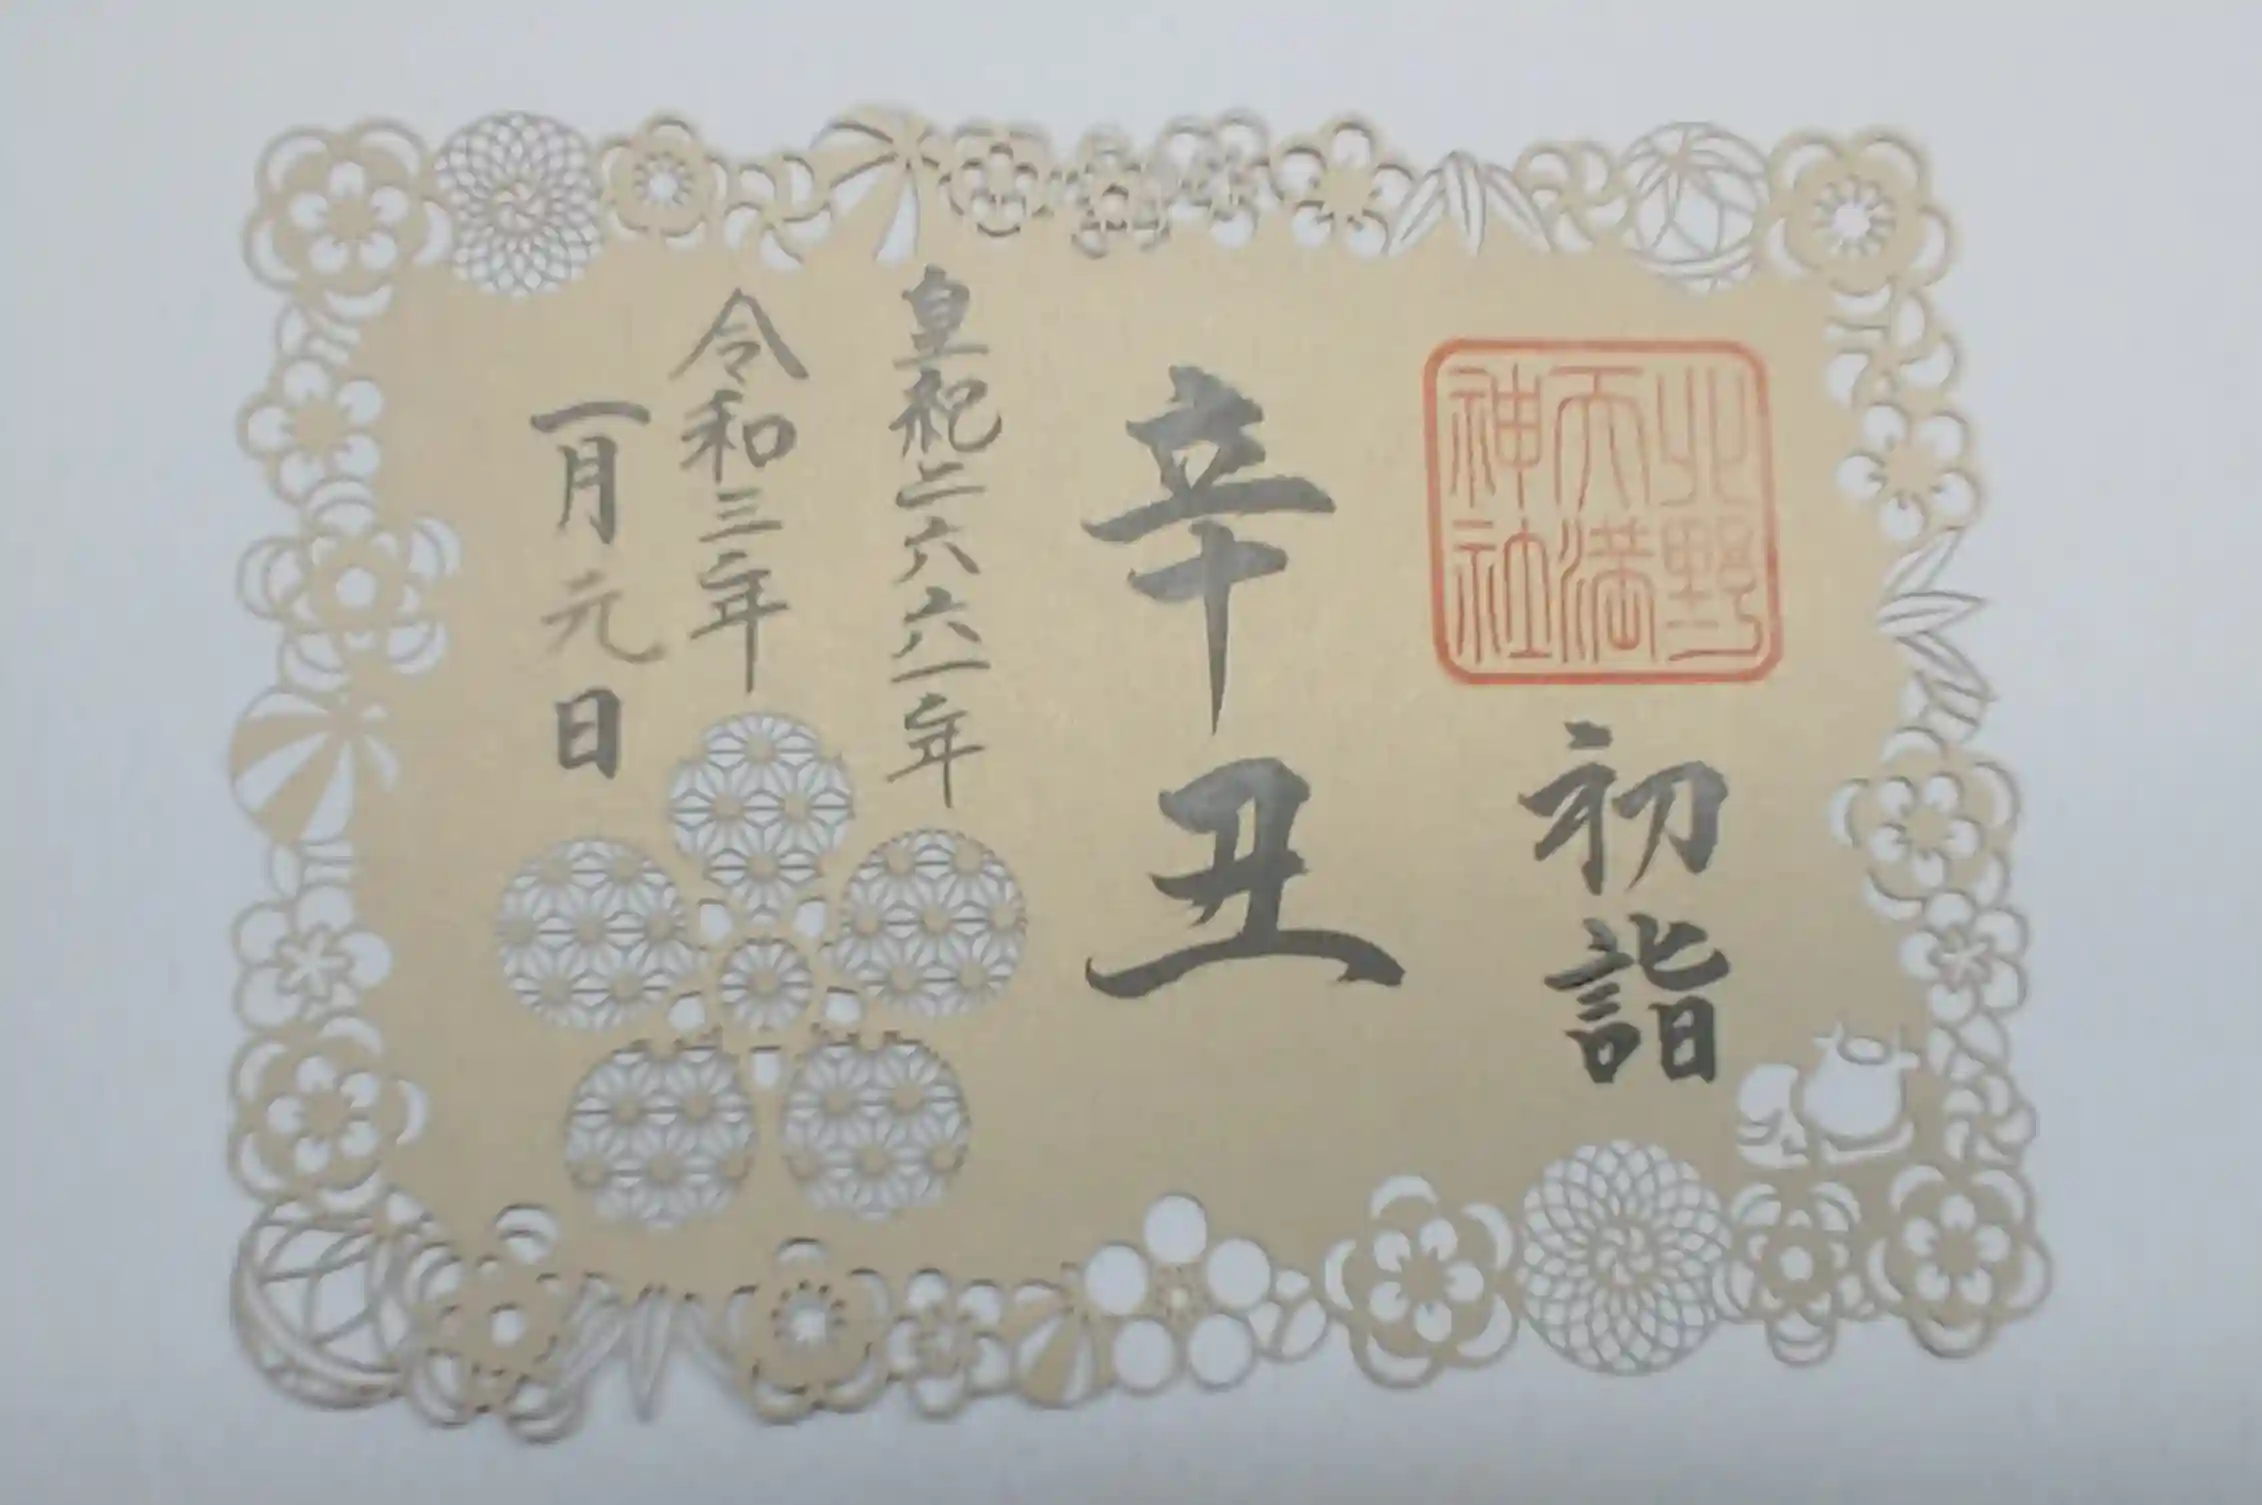 北野
天満
神社
初詣
辛丑
皇紀二六六一年
令和三年
一月元日